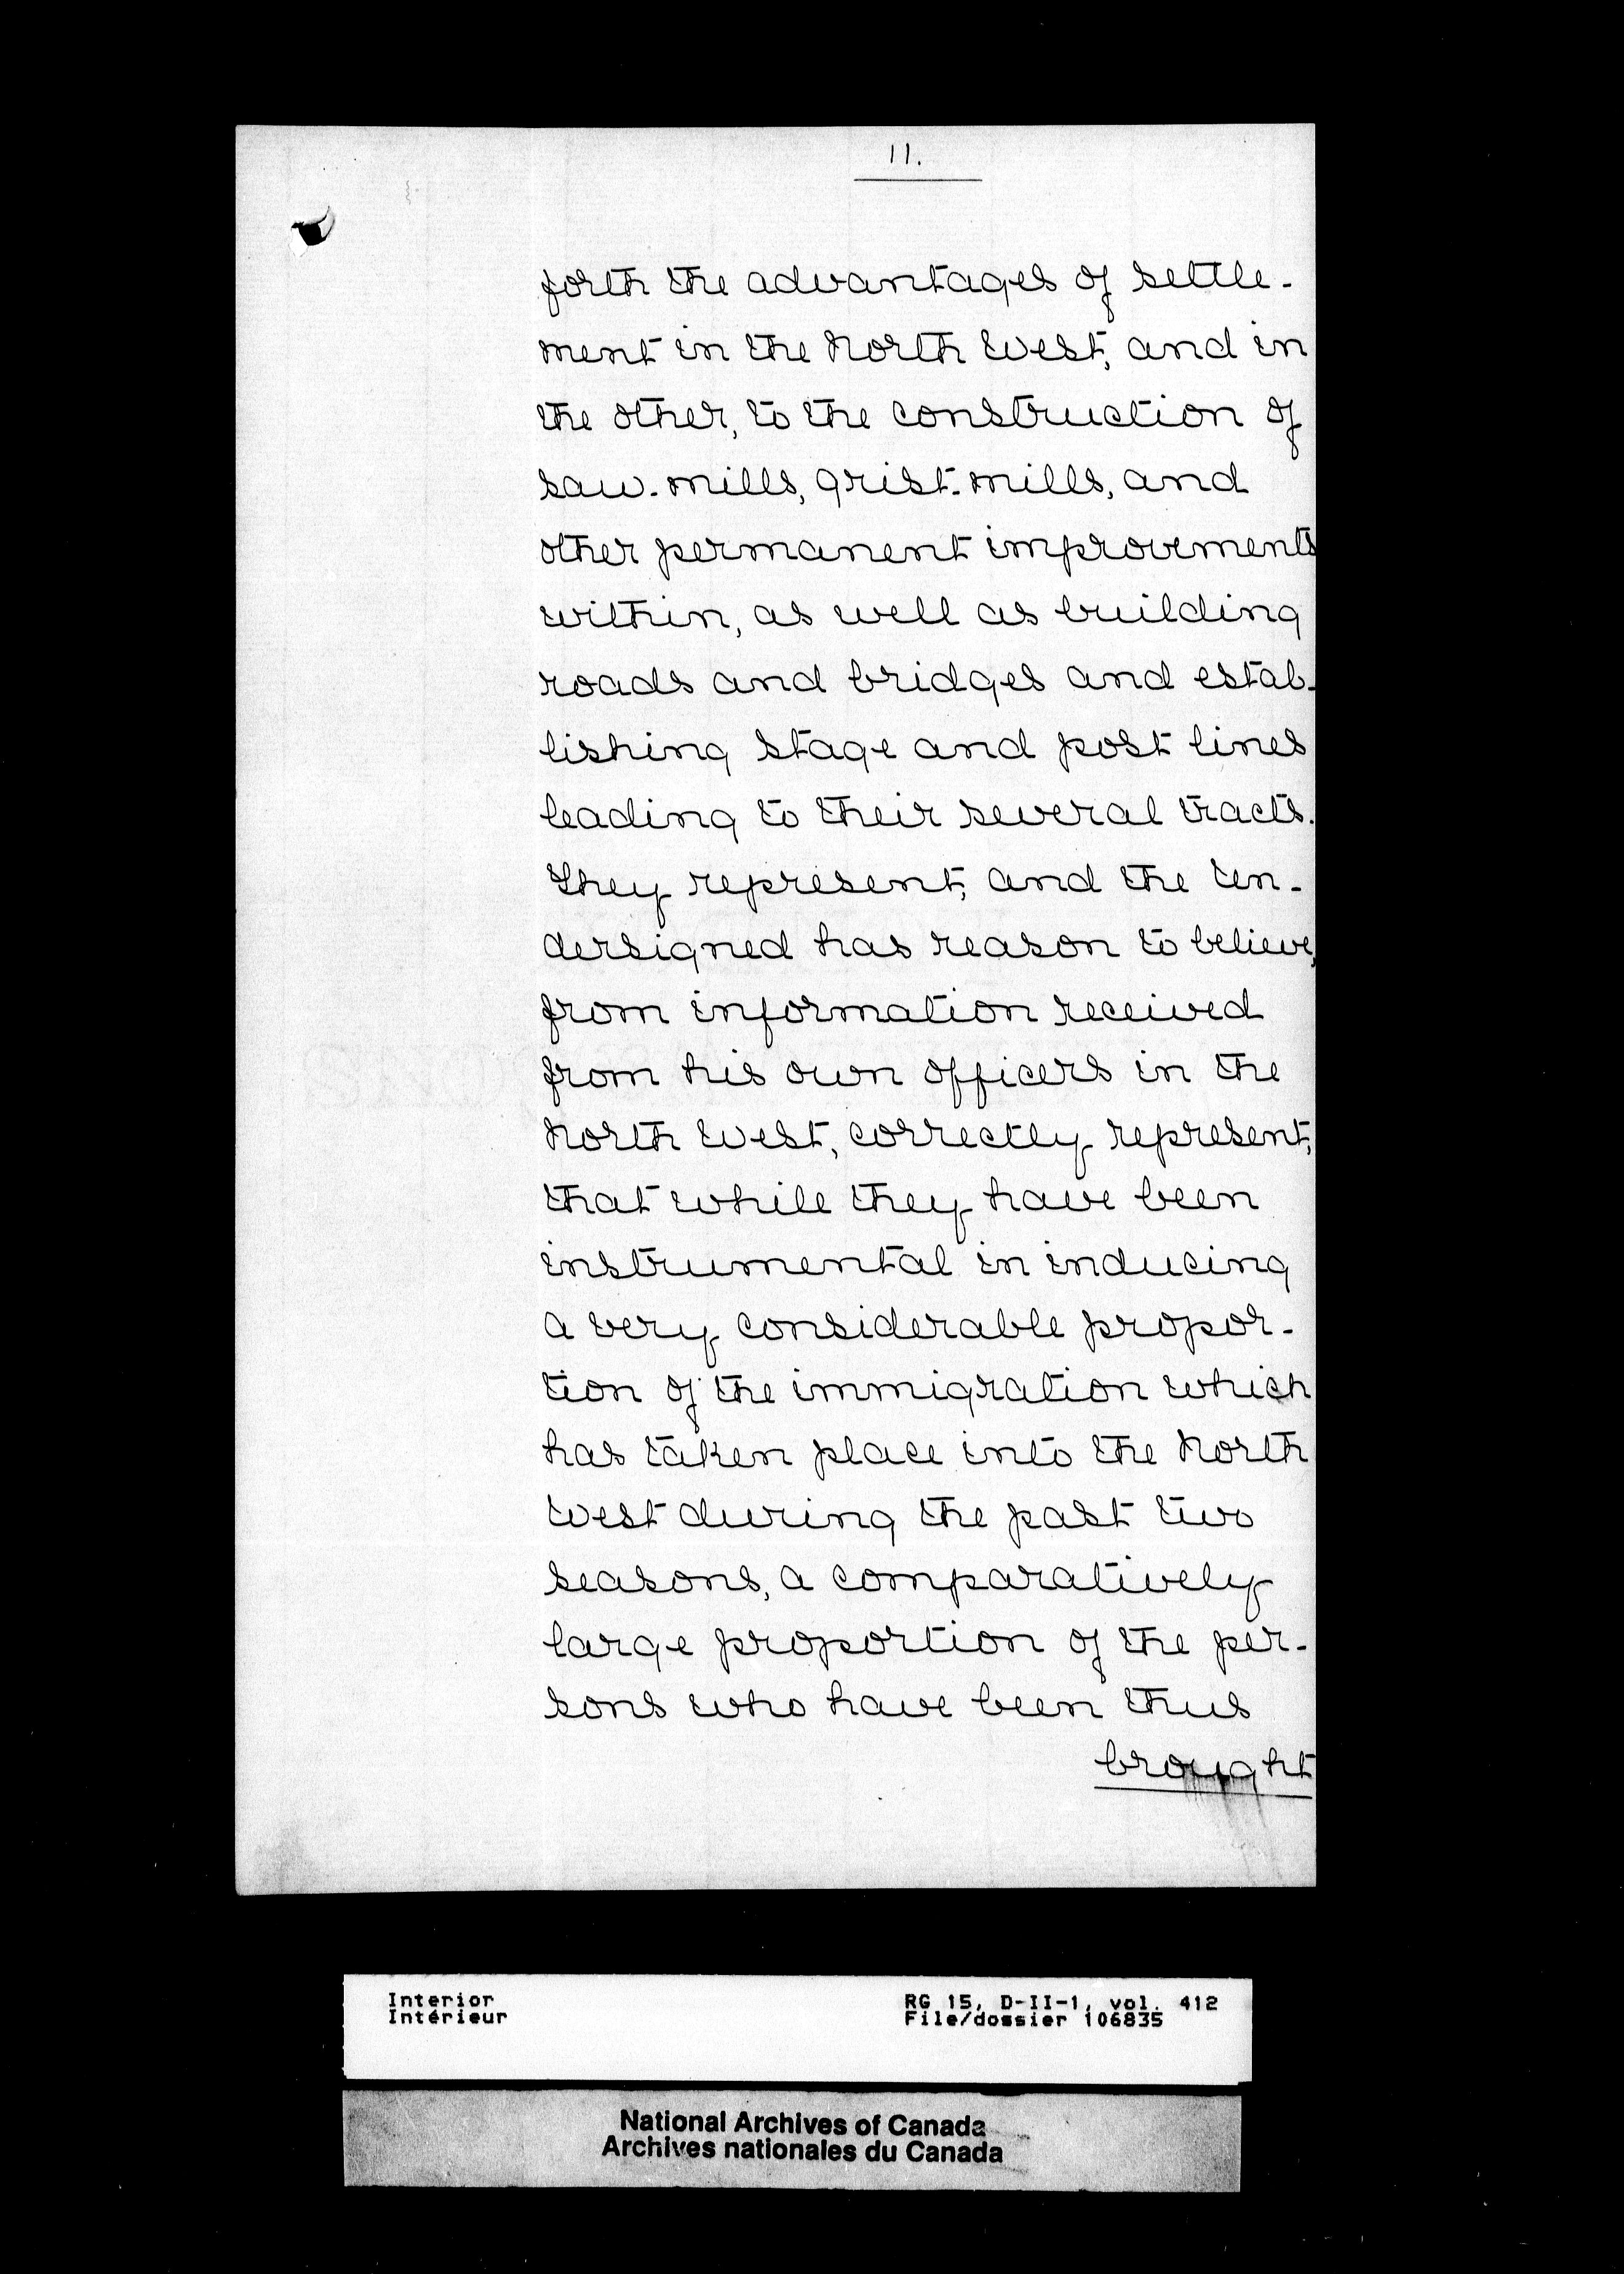 11.
forth the advantages of settle-
ment in the North West, and in
the other, to the construction of
saw-mills, grist-mills, and
other permanent improvements
within, as well as building
roads and bridges and estab-
lishing stage and post lines
leading to their several tracts.
They represent, and the un-
dersigned has reason to believe,
from information received
from his own officers in the
North West, correctly represent,
that while they have been
instrumental in inducing
a very considerable propor-
tion of the immigration which
has taken place into the North
West during the past two
seasons, a comparatively
large proportion of the per-
sons who have been thus
brought
Interior RG 15, D-II-1, vol. 412
Intérieur File/dossier 106835
National Archives of Canada
Archives nationales du Canada